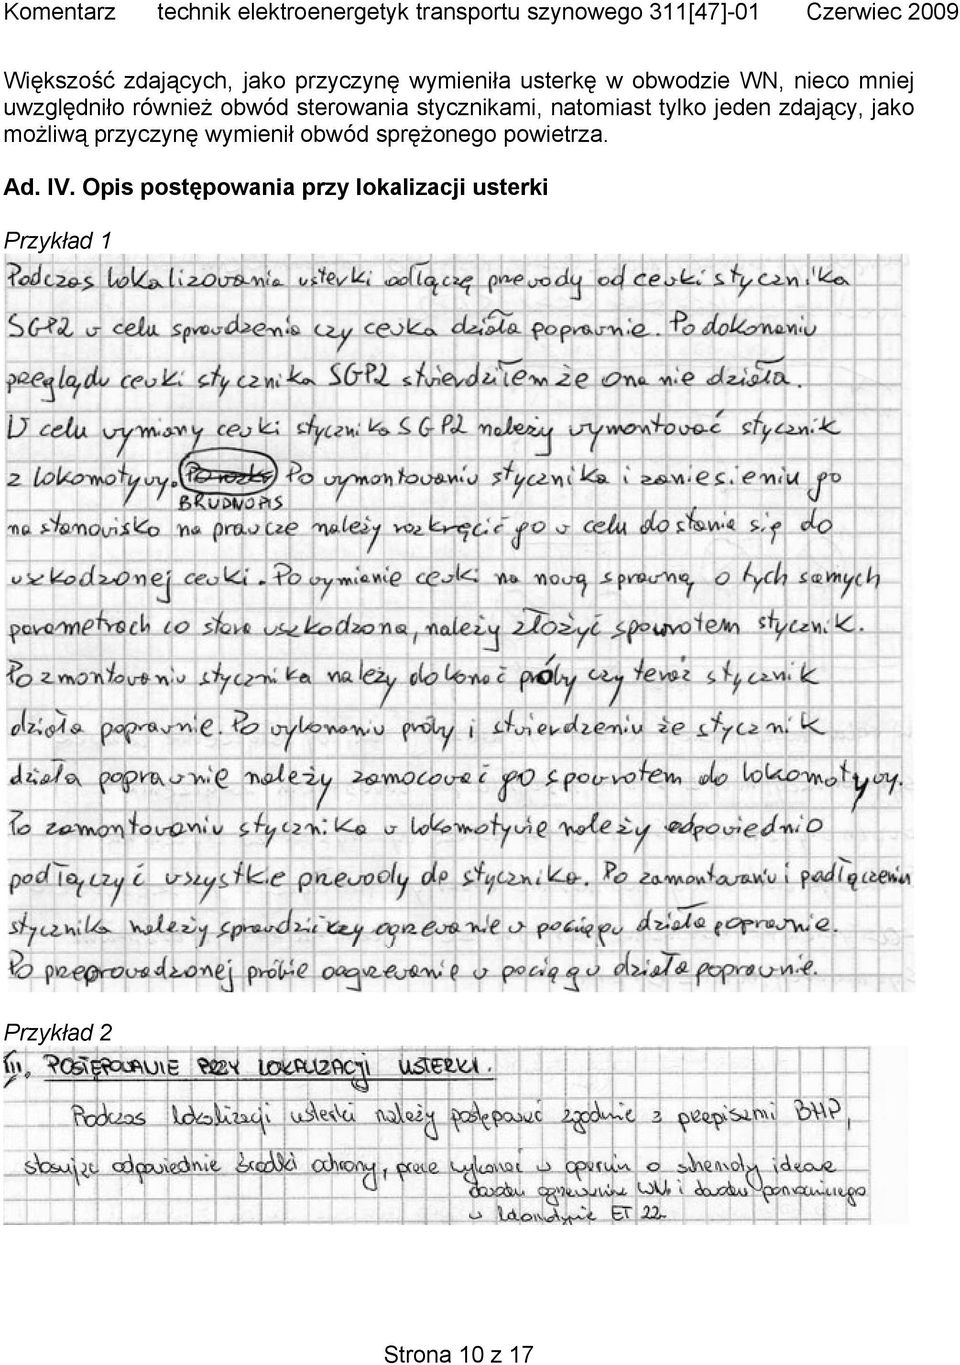 Komentarz technik elektroenergetyk transportu szynowego 311[47]-01 Czerwiec 2009
Większość zdających, jako przyczynę wymieniła usterkę w obwodzie WN, nieco mniej
uwzględniło również obwód sterowania stycznikami, natomiast tylko jeden zdający, jako
możliwą przyczynę wymienił obwód sprężonego powietrza.
Ad. IV. Opis postępowania przy lokalizacji usterki
Przykład 1
Podczas lokalizowania usterki odłączę przewody od cewki stycznika
SGP2 w celu sprawdzenia czy cewka działa poprawnie. Po dokonaniu
przeglądu cewki stycznika SGP2 stwierdziłem że ona nie działa.
W celu wymiany cewki stycznika SGP2 należy wymontować stycznik
z lokomotywy. Po wymontowaniu stycznika i zaniesieniu go
BRUDNOPIS
na stanowisko na pracwcze należy rozkręcić go w celu dostania się do
uszkodzonej cewki. Po wymianie cewki na nową sprawną o tych samych
parametrach co stara uszkodzona, należy złożyć spowrotem stycznik.
Po zmontowaniu stycznika należy dokonać próby czy teraz stycznik
działa poprawnie. Po wykonaniu próby i stwierdzeniu że stycznik
działa poprawnie należy zamocować go spowrotem do lokomotywy.
Po zamontowaniu stycznika w lokomotywie należy odpowiednio
podłączyć wszystkie przewody do stycznika. Po zamontowaniu i podłączeniu
stycznika należy sprawdzić czy ogrzewanie w pociągu działa poprawnie.
Po przeprowadzonej próbie oagrzewanie w pociągu działa poprawnie.
Przykład 2
III. POSTĘPOWANIE PRZY LOKALIZACJI USTERKI.
Podczas lokalizacji usterki należy postępować zgodnie z przepisami BHP,
stosując odpowiednie środki ochrony, prace wykonać w oparciu o schematy ideowe
obwodu ogrzewania WN i obwodu pomocniczego
w lokomotywie ET 22
Strona 10 z 17